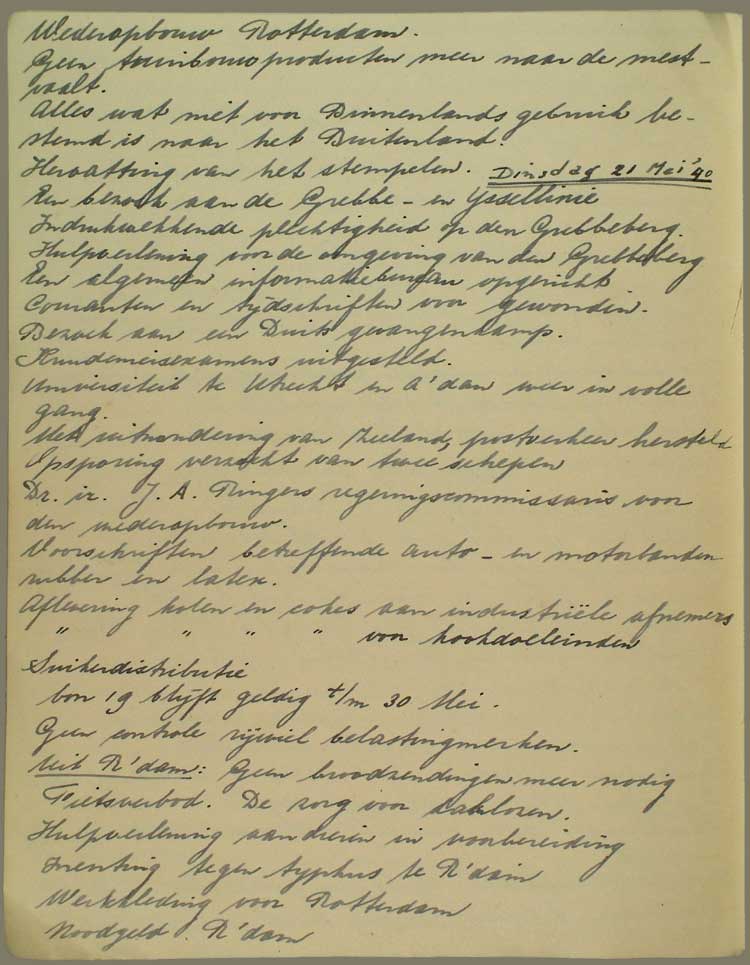 Wederopbouw Rotterdam.
Geen tuinbouwproducten meer naar de mest-
vaalt.
Alles wat niet voor Binnenlands gebruik be-
stemd is naar het Buitenland.
Hervatting van het stempelen. Dinsdag 21 Mei '40
Een bezoek aan de Grebbe- en Yssellinie
Indrukwekkende plechtigheid op den Grebbeberg.
Hulpverlening voor de omgeving van den Grebbeberg
Een algemeen informatiebureau opgericht
Couranten en tijdschriften voor gewonden.
Bezoek aan een Duits gevangenkamp.
Examens uitgesteld.
Universiteit te Utrecht en A'dam weer in volle
gang.
Met uitzondering van Zeeland, postverkeer hersteld
Opsporing verzocht van twee schepen
Dr. ir. J. A. Ringers regeringscommissaris voor
den wederopbouw.
Voorschriften betreffende auto- en motorbanden
rubber en latex.
Aflevering kolen en cokes aan industriële afnemers
" " " " voor kookdoeleinden
Suikerdistributie
bon 19 blijft geldig t/m 30 Mei.
Geen controle rijwiel belastingmerken.
Uit R'dam: Geen broodzendingen meer nodig
Fietsverbod. De zorg voor daklozen.
Hulpverlening aan dieren in voorbereiding
Inenting tegen typhus te R'dam
Werkkleding voor Rotterdam
Noodgeld. R'dam